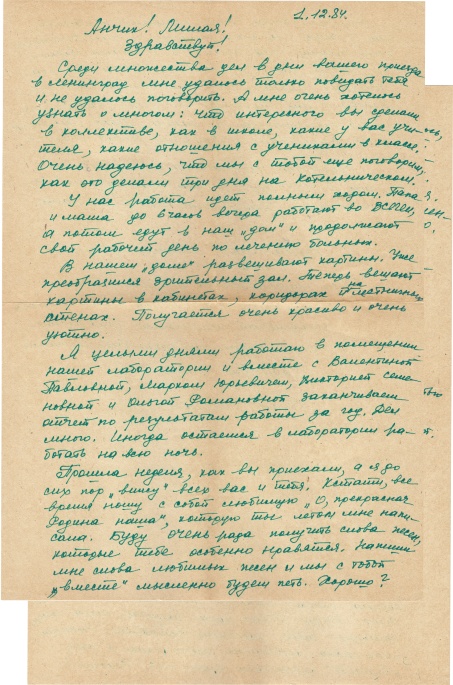 1.12.84.
Анчик! Милая!
Здравствуй!
Среди множества дел в дни вашего приезда
в Ленинград мне удалось только повидать тебя
и не удалось поговорить. А мне очень хотелось
узнать о многом: что интересного вы сделали
в коллективе, как в школе, какие у вас учи-
теля, какие отношения с учениками в классе.
Очень надеюсь, что мы с тобой еще поговорим,
как это делали три дня на Котельническом.
У нас работа идет полным ходом. Папа
и мама до 6 часов вечера работают во
а потом едут в наш „дом" и продолжают
свой рабочий день по лечению больных.
В нашем „доме" развешивают картины. Уже
преобразился зрительный зал. Теперь вешают
картины в кабинетах, коридорах на лестничных
стенах. Получается очень красиво и очень
уютно.
А целыми днями работаю в помещении
нашей лаборатории и вместе с Валентиной
Павловной, Марком Юрьевичем, Викторией Семе-
новной и Ольгой Романовной заканчиваем
отчет по результатам работы за год. Дел
много. Иногда остаемся в лаборатории ра-
ботать на всю ночь.
Прошла неделя, как вы приехали, а я до
сих пор „вижу" всех вас и тебя. Кстати, все
время ношу с собой любимую „О, прекрасная
Родина наша", которую ты летом мне напи-
сала. Буду очень рада получить слова песен,
которые тебе особенно нравятся. Напиши
мне слова любимых песен и мы с тобой
„вместе" мысленно будем петь. Хорошо?